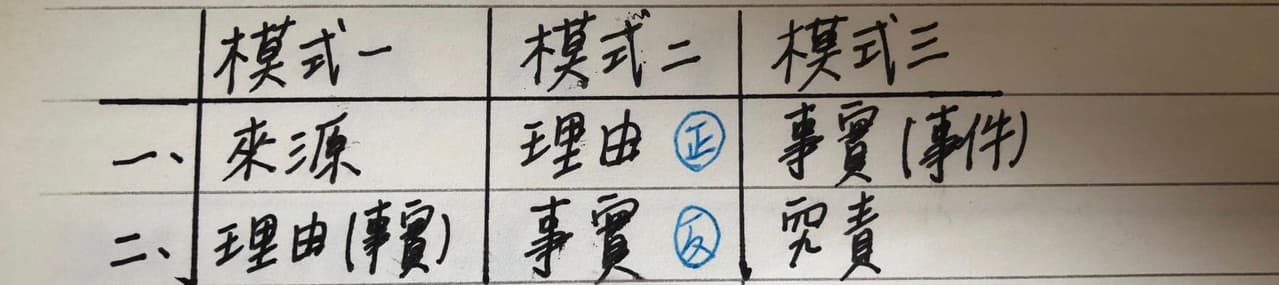 模式一 模式二 模式三
一、 來源 理由 正 事實(事件)
二、 理由(事實) 事實 反 究責